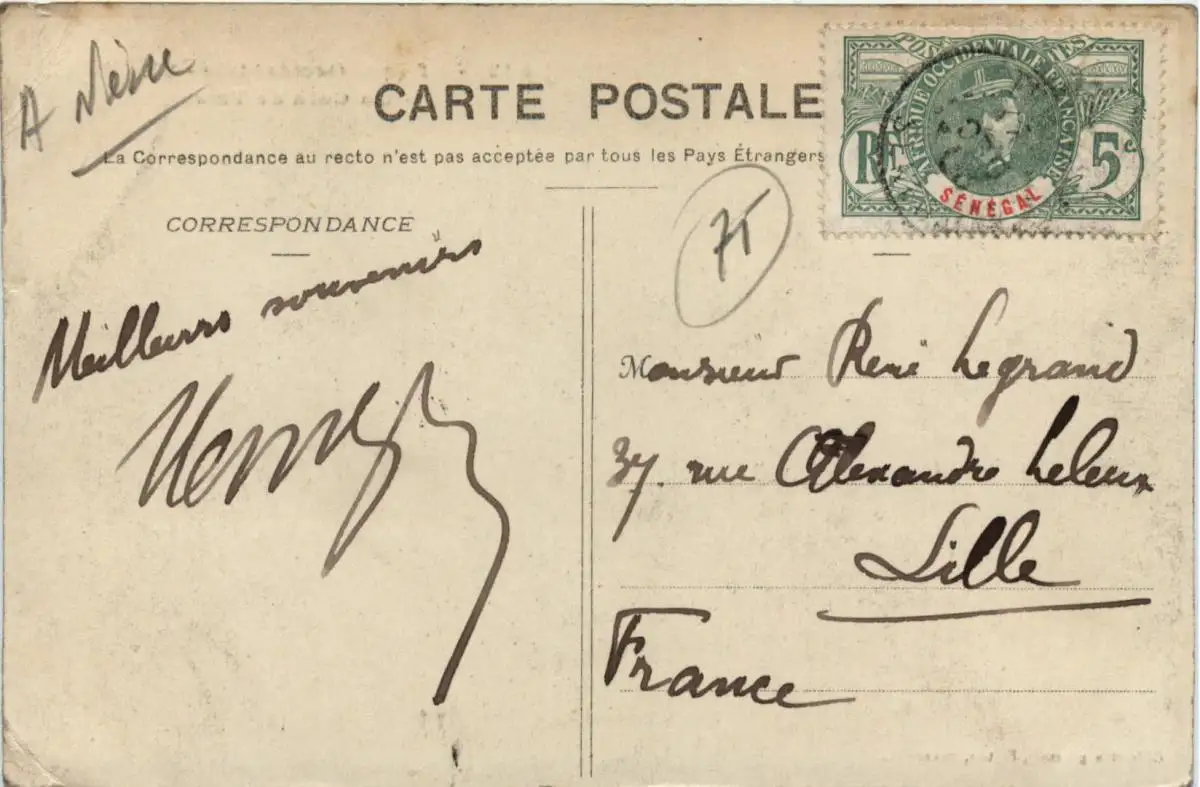 A
CARTE POSTALE
La Correspondance au recto n'est pas acceptée par tous les Pays Étrangers
POSSESSIONS
AFRIQUE OCCIDENTALE FRANÇAISE
RF
5c
SÉNÉGAL
CORRESPONDANCE
75
Meilleurs souvenirs
Monsieur René Legrand
37. rue Alexandre Leleux
Lille
France